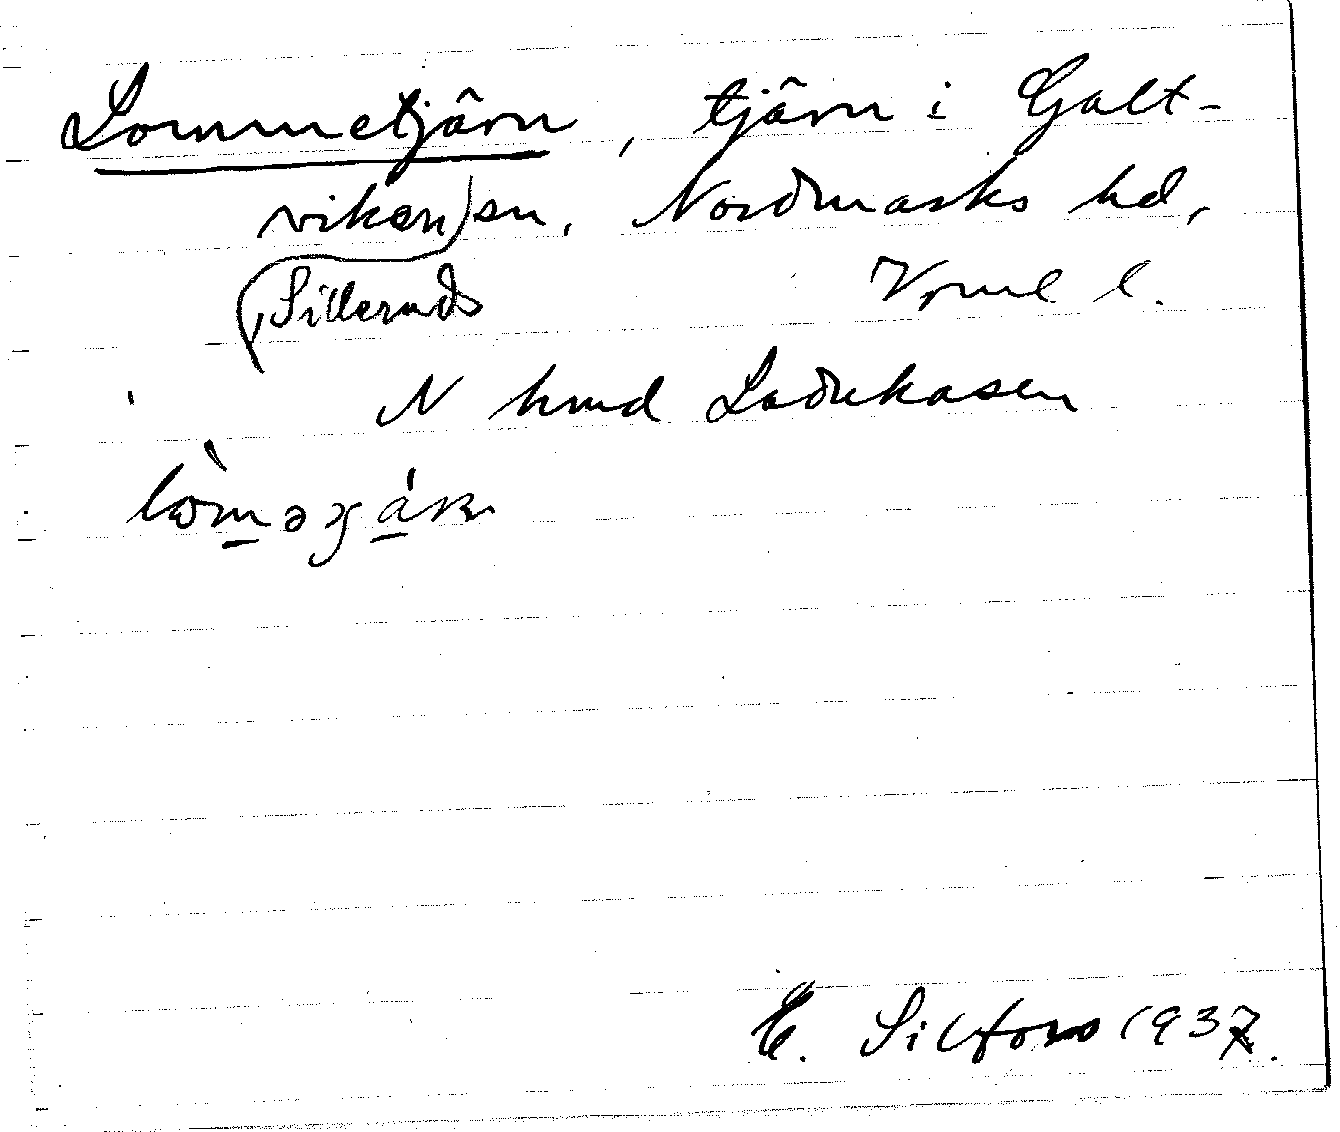 Lommetjärn, tjärn i Galt-
viken) sn, Nordmarks hd,
(Silleruds Vrml l.
N kmd Ladukasen
E. Silfors 1937.